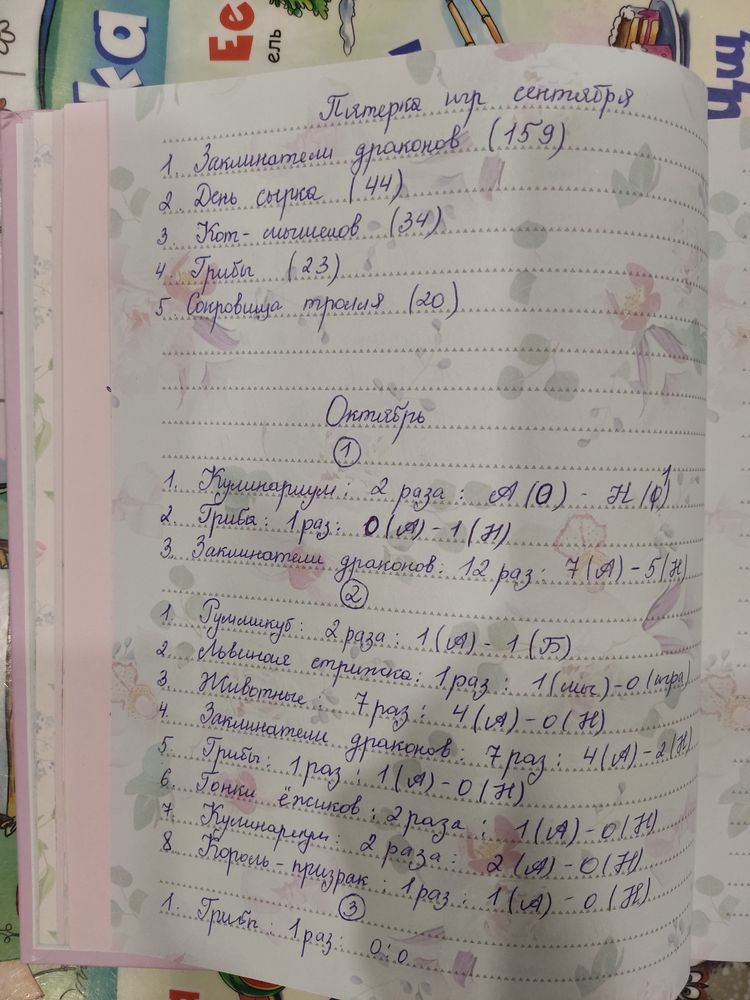 ка
Ее
ель
Щ
Пятерка игр сентября
1. Заклинатели драконов (159)
2. День сырка (44)
3 Кот-мышелов (34)
4 Грибы (23)
5 Сокровища тролля (20)
Октябрь
1
1. Кулинариум: 2 раза: А(0) - Н(1)
2. Грибы: 1 раз: 0(А) - 1(Н)
3. Заклинатели драконов: 12 раз: 7(А) - 5(Н)
2
1. Руммикуб: 2 раза: 1(А) - 1(Б)
2. Львиная стрижка: 1 раз: 1(мы) - 0(игра)
3 Животные: 7 раз: 4(А) - 0(Н)
4. Заклинатели драконов: 7 раз: 4(А) - 2(Н)
5. Грибы: 1 раз: 1(А) - 0(Н)
6. Гонки ёжиков: 2 раза: 1(А) - 0(Н)
7. Кулинариум: 2 раза: 2(А) - 0(Н)
8. Король-призрак: 1 раз: 1(А) - 0(Н)
3
1. Грибы: 1 раз: 0:0